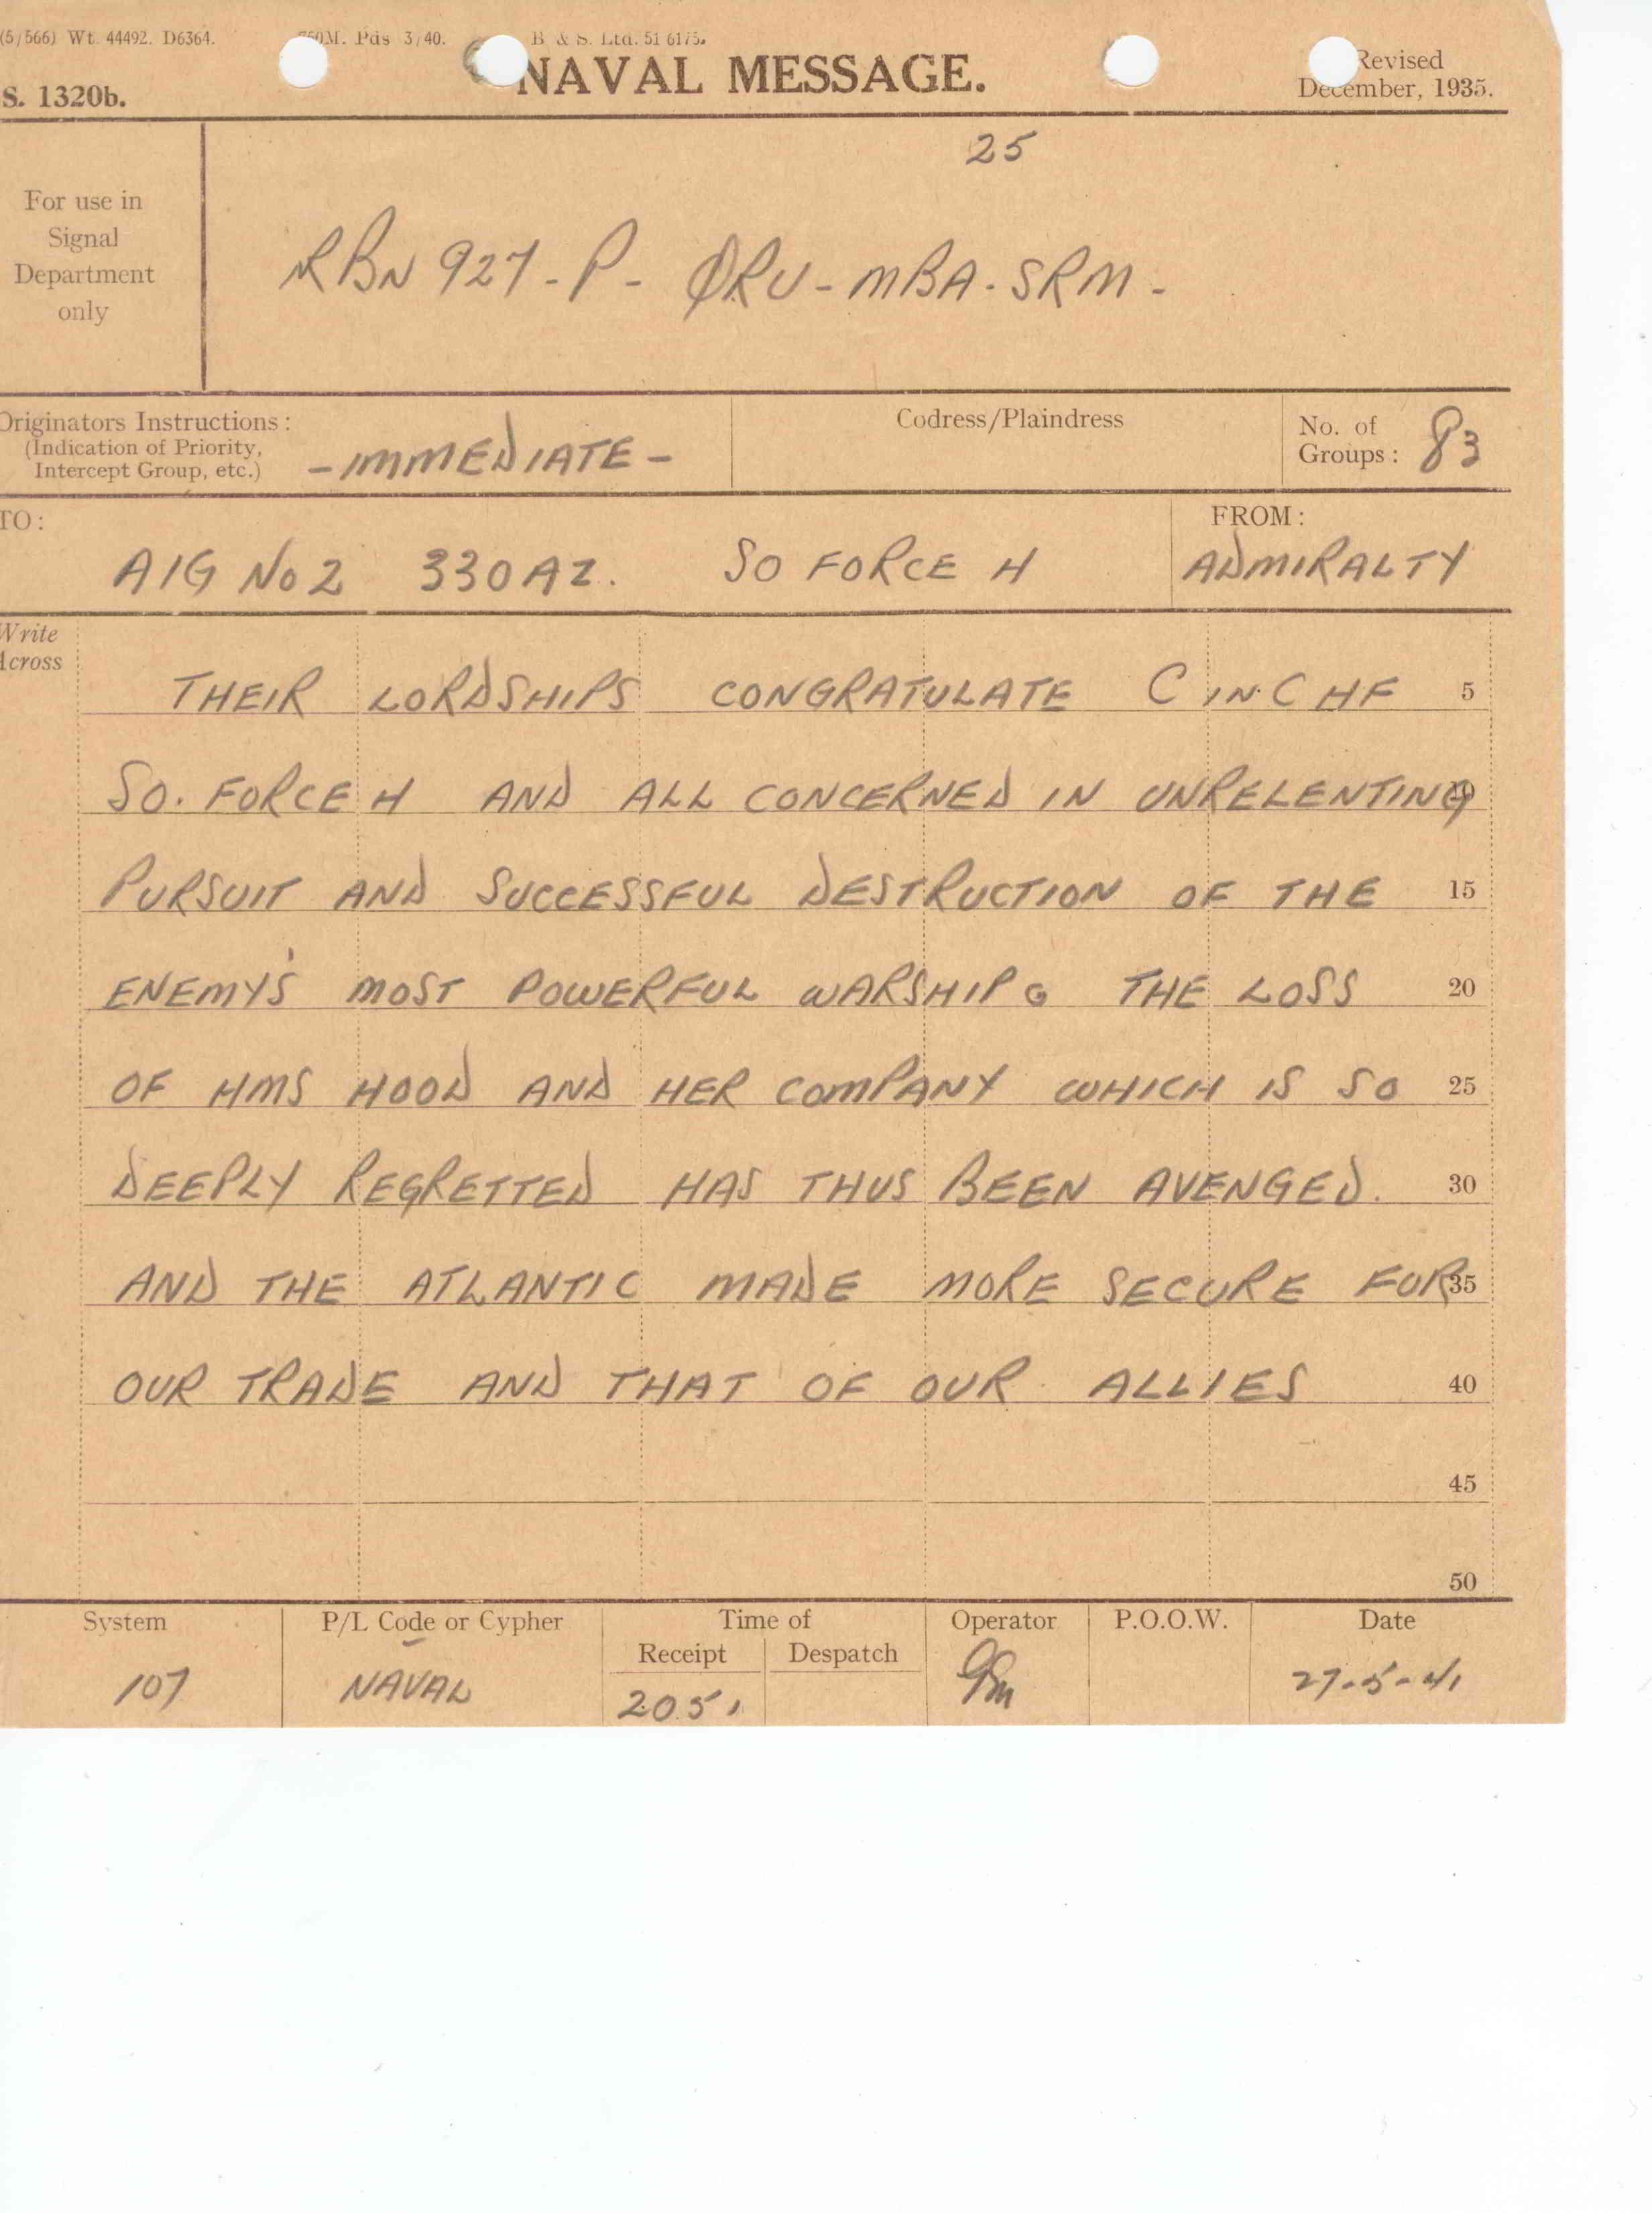 (5/566) Wt. 44492. D6364. Pds 3/40. B & S. Ltd. 51 6175.
S. 1320b. NAVAL MESSAGE. Revised December, 1935.
25
For use in
Signal
Department
only
RBN 927 - P - ØRU - MBA - SRM -
Originators Instructions:
(Indication of Priority,
Intercept Group, etc.)
- IMMEDIATE -
Codress/Plaindress
No. of
Groups: 83
TO:
AIG No 2 330 AZ. SO FORCE H
FROM:
ADMIRALTY
Write
Across
THEIR LORDSHIPS CONGRATULATE C IN C HF 5
SO. FORCE H AND ALL CONCERNED IN UNRELENTING 10
PURSUIT AND SUCCESSFUL DESTRUCTION OF THE 15
ENEMY'S MOST POWERFUL WARSHIP. THE LOSS 20
OF HMS HOOD AND HER COMPANY WHICH IS SO 25
DEEPLY REGRETTED HAS THUS BEEN AVENGED. 30
AND THE ATLANTIC MADE MORE SECURE FOR 35
OUR TRADE AND THAT OF OUR ALLIES 40
45
50
System P/L Code or Cypher Time of Operator P.O.O.W. Date
Receipt Despatch
107 NAVAL 2051 27-5-41